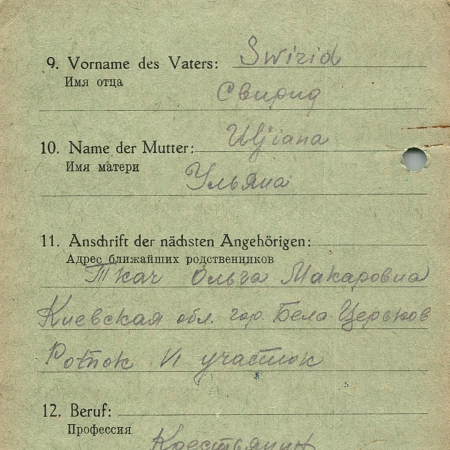 9. Vorname des Vaters: Swirid
Имя отца
Свирид
10. Name der Mutter: Uljana
Имя матери
Ульяна
11. Anschrift der nächsten Angehörigen:
Адрес ближайших родственников
Ткач Ольга Макаровна
Киевская обл. гор. Бела Церьков
VI участок
12. Beruf:
Профессия
Крестьянин